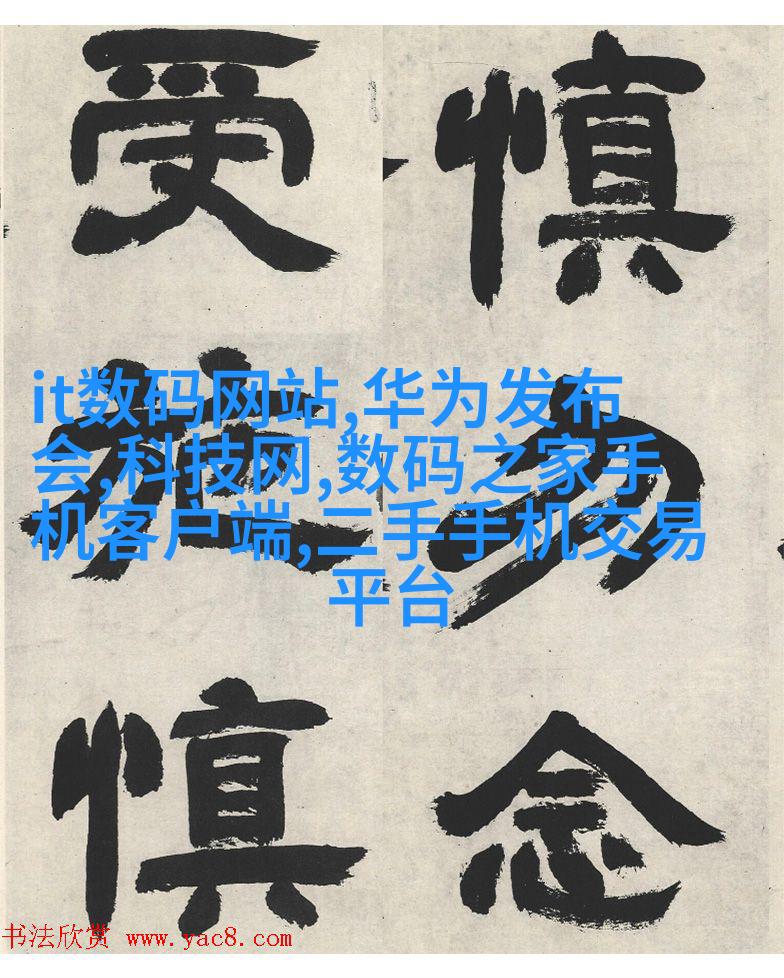 慎勿念
受施慎
it数码网站,华为发布
会,科技网,数码之家手
机客户端,二手手机交易
平台
书法欣赏 www.yac8.com